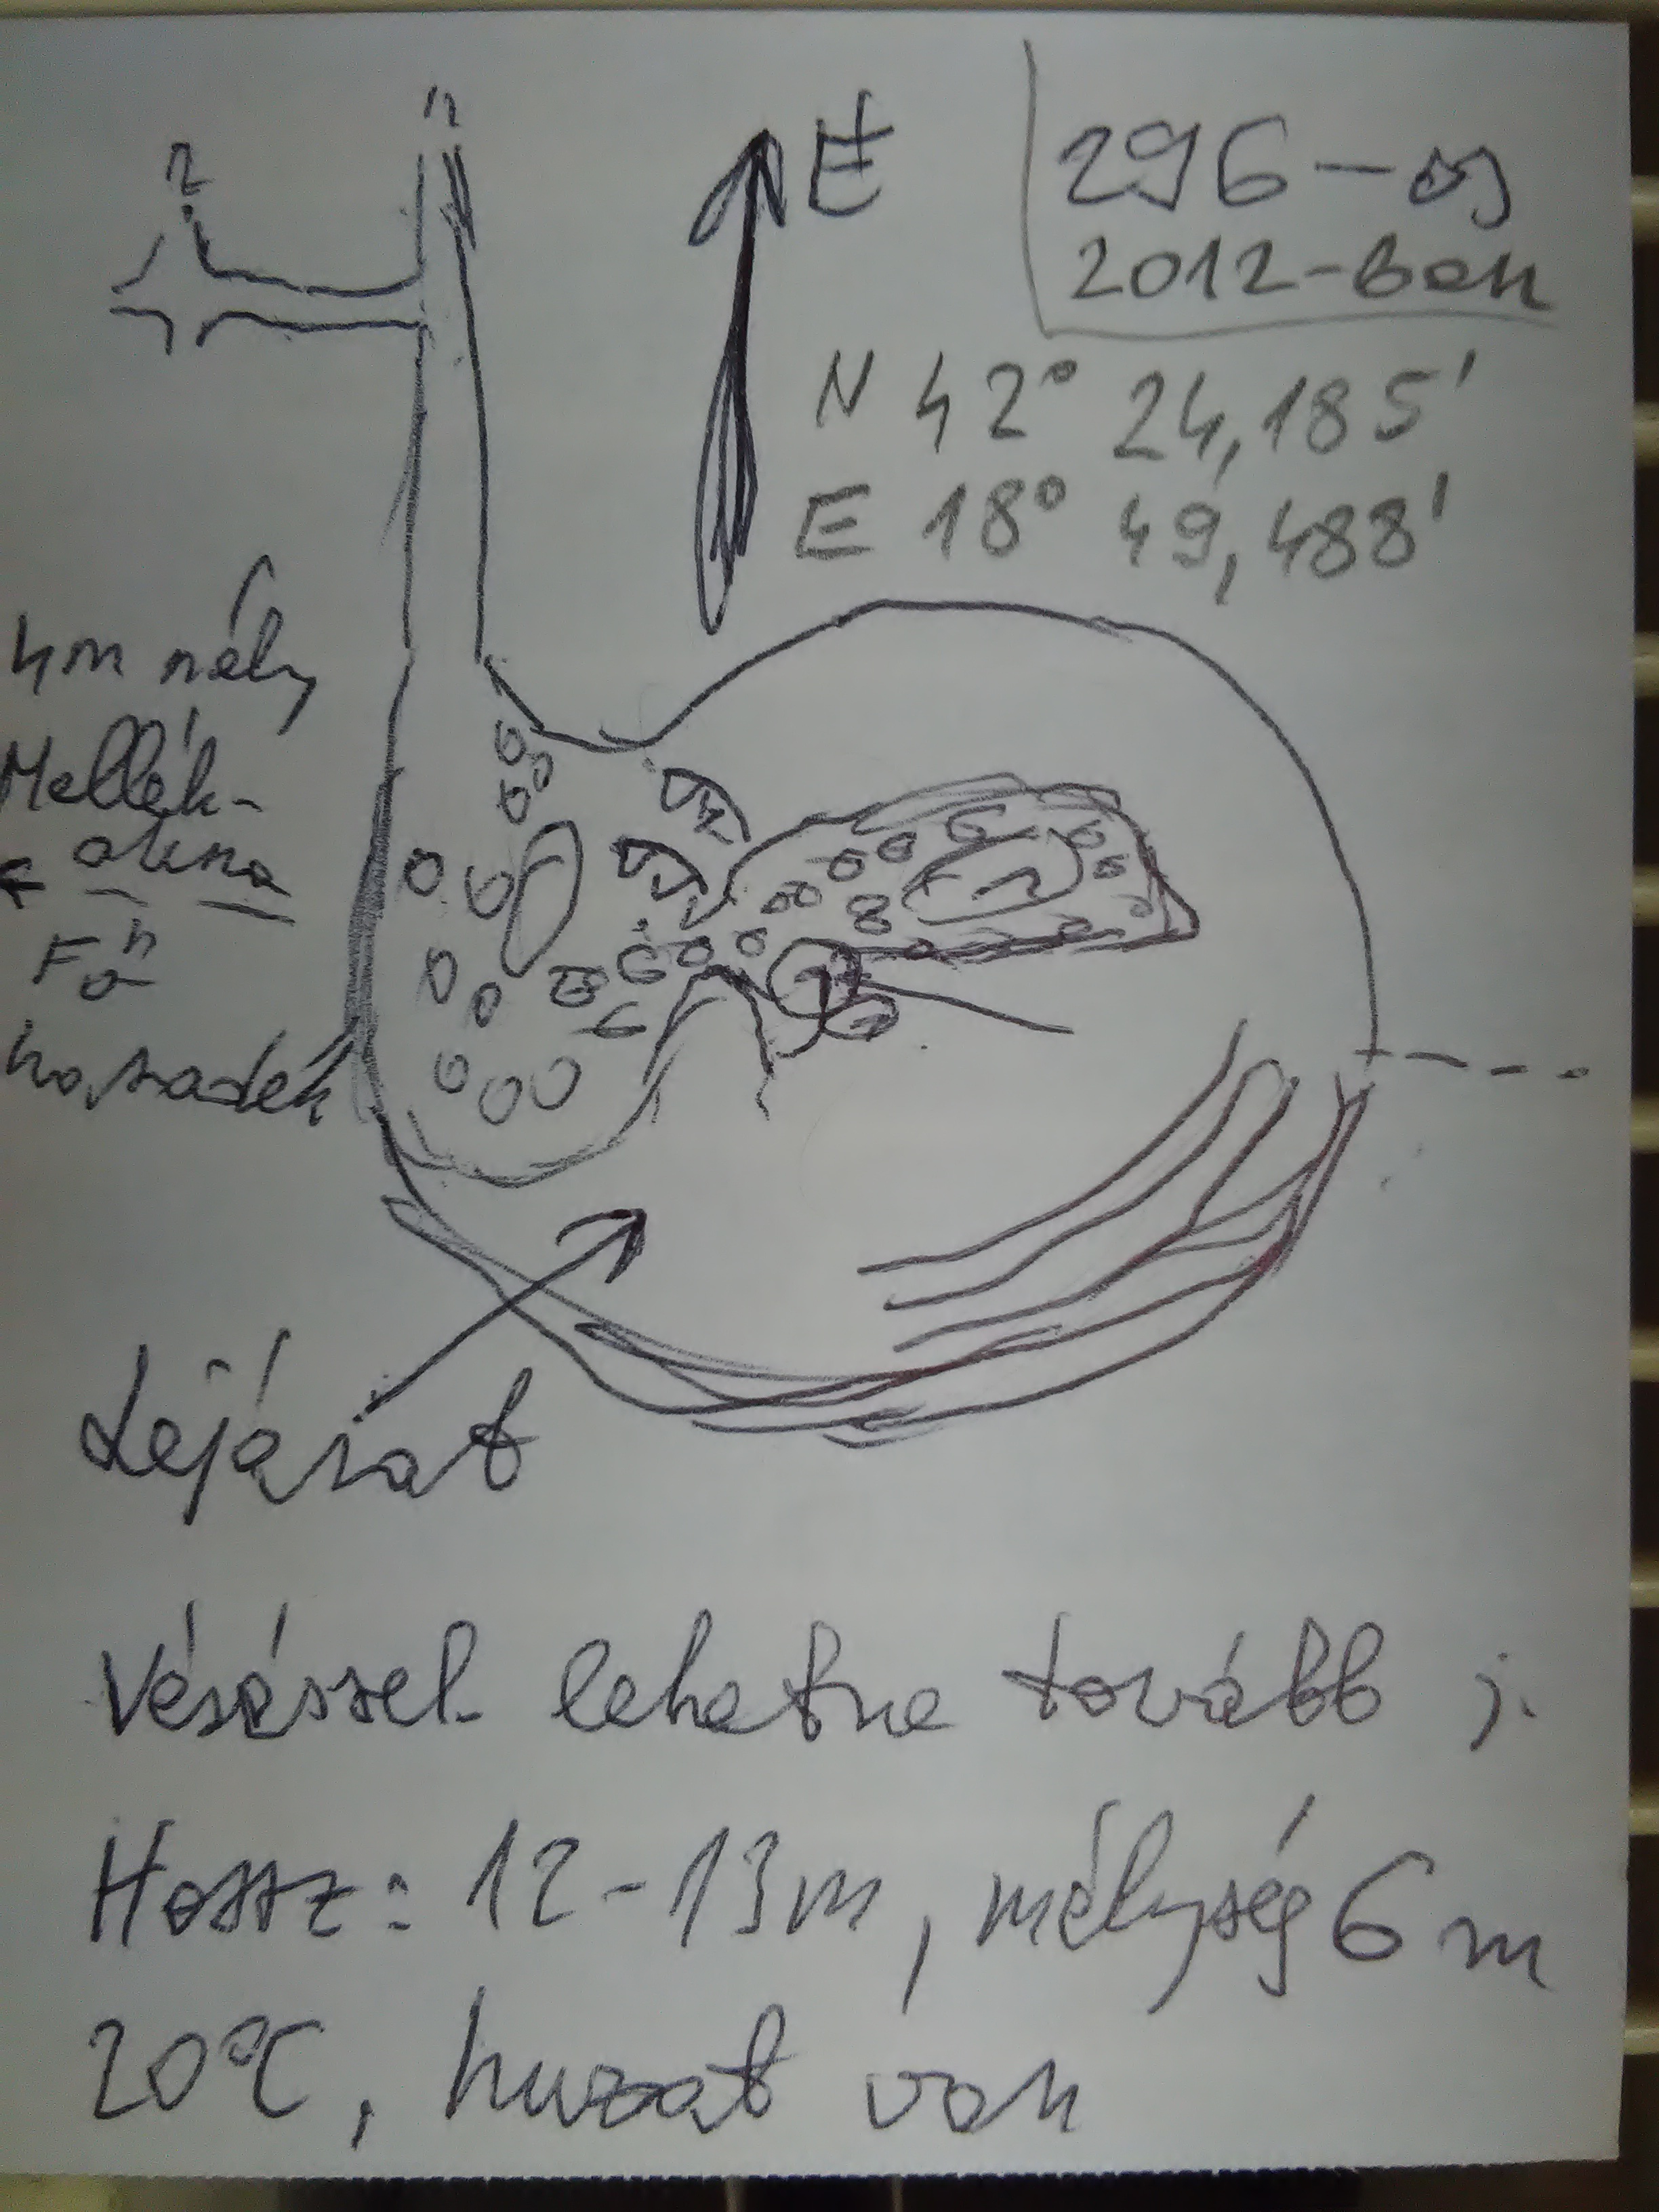 É
296-os
2012-ben
N 42° 24,185'
E 18° 49,488'
4m mély
Mellék-
akna
Fő
hasadék
Lejárat
Véséssel lehetne tovább j.
Hossz: 12-13m, mélység 6m
20°C, huzat van